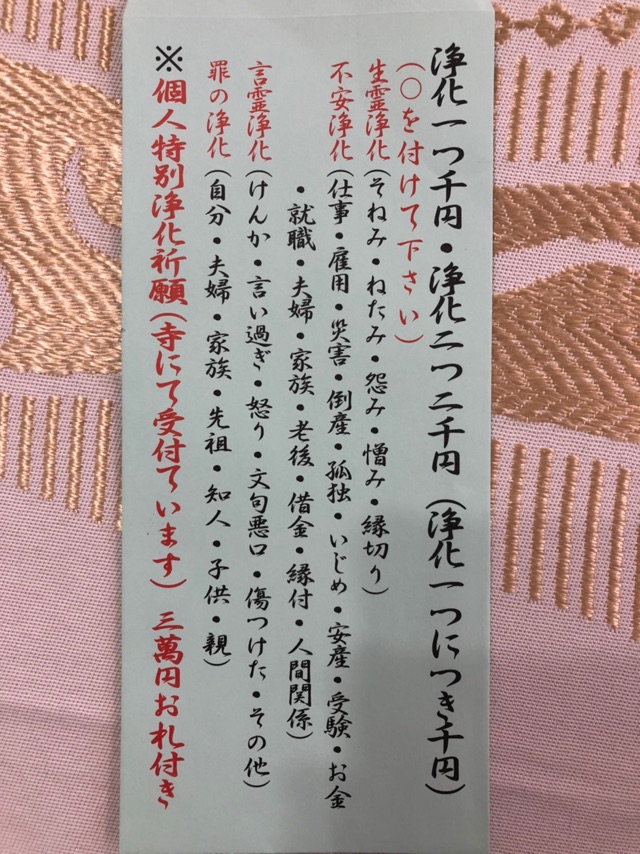 浄化一つ千円・浄化二つ二千円（浄化一つにつき千円）
（○を付けて下さい）
生霊浄化（そねみ・ねたみ・怨み・憎み・縁切り）
不安浄化（仕事・雇用・災害・倒産・孤独・いじめ・安産・受験・お金
・就職・夫婦・家族・老後・借金・縁付・人間関係）
言霊浄化（けんか・言い過ぎ・怒り・文句悪口・傷つけた・その他）
罪の浄化（自分・夫婦・家族・先祖・知人・子供・親）
※個人特別浄化祈願（寺にて受付ています）三萬円お札付き